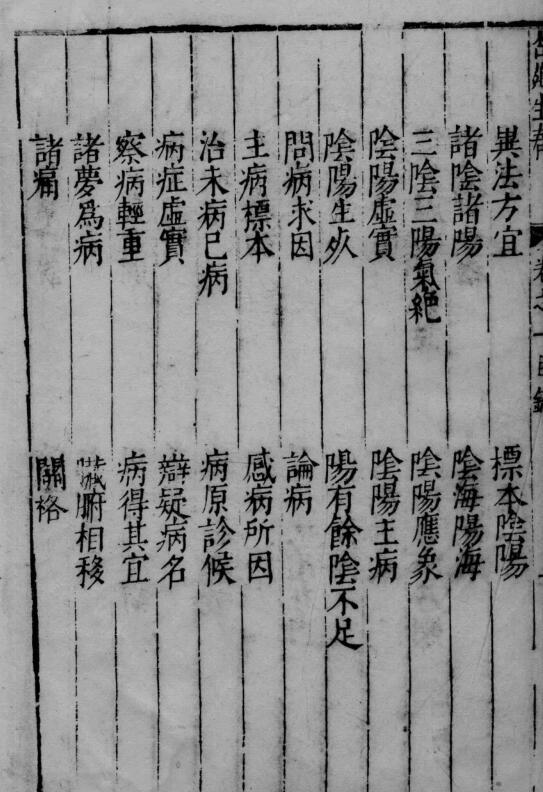 異法方宜 標本陰陽
諸陰諸陽 陰海陽海
三陰三陽氣絶 陰陽應象
陰陽虛實 陰陽主病
陰陽生死 陽有餘陰不足
問病求因 論病
主病標本 感病所因
治未病已病 病原診候
病症虛實 辯疑病名
察病輕重 病得其宜
諸夢爲病 臟腑相移
諸痛 關格